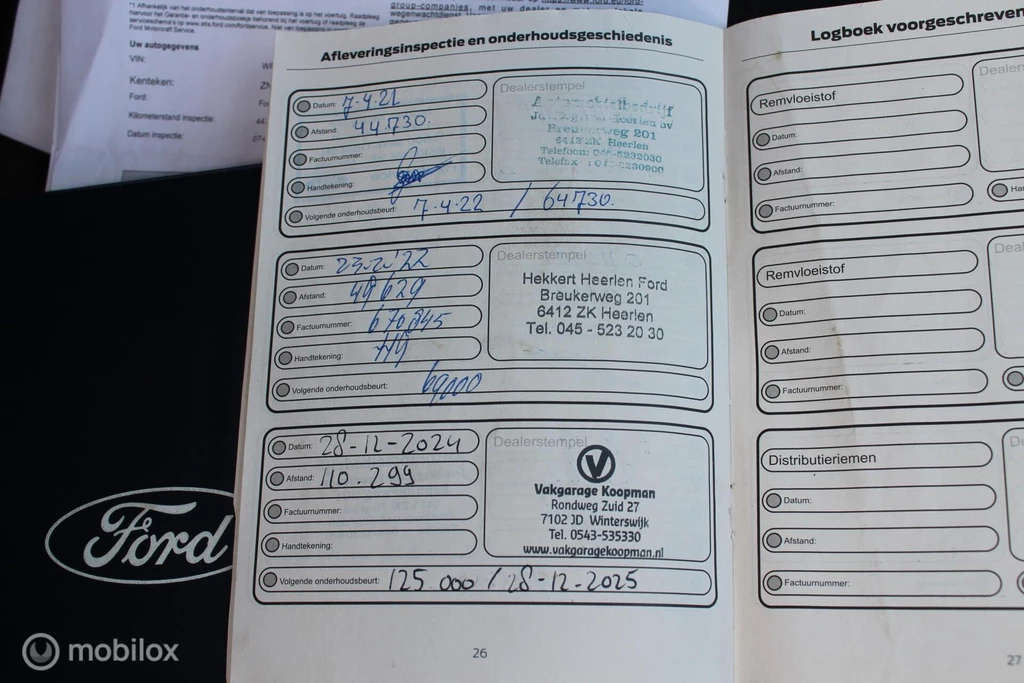 *1 Afhankelijk van het onderhoudsinterval dat van toepassing is op het voertuig. Raadpleeg
Ford Motorcraft Service.
Uw autogegevens
VIN:
Kenteken:
Ford:
Kilometerstand inspectie:
Datum inspectie:
group-companies, met uw dealer
Afleveringsinspectie en onderhoudsgeschiedenis
Datum: 7-4-21
Afstand: 44.730.
Factuurnummer:
Handtekening:
Volgende onderhoudsbeurt: 7-4-22 / 64730.
Dealerstempel
Heerlen bv
Breukerweg 201
6412 ZK Heerlen
Telefoon: 045-5232030
Telefax
Datum: 23-2-'22
Afstand: 49629
Factuurnummer: 670845
Handtekening:
Volgende onderhoudsbeurt: 69000
Dealerstempel
Hekkert Heerlen Ford
Breukerweg 201
6412 ZK Heerlen
Tel. 045 - 523 20 30
Datum: 28-12-2024
Afstand: 110.299
Factuurnummer:
Handtekening:
Volgende onderhoudsbeurt: 125.000 / 28-12-2025
Dealerstempel
V
Vakgarage Koopman
Rondweg Zuid 27
7102 JD Winterswijk
Tel. 0543-535330
www.vakgaragekoopman.nl
26
Logboek voorgeschreven
Remvloeistof
Datum:
Afstand:
Factuurnummer:
Remvloeistof
Datum:
Afstand:
Factuurnummer:
Distributieriemen
Datum:
Afstand:
Factuurnummer:
27
Ford
mobilox